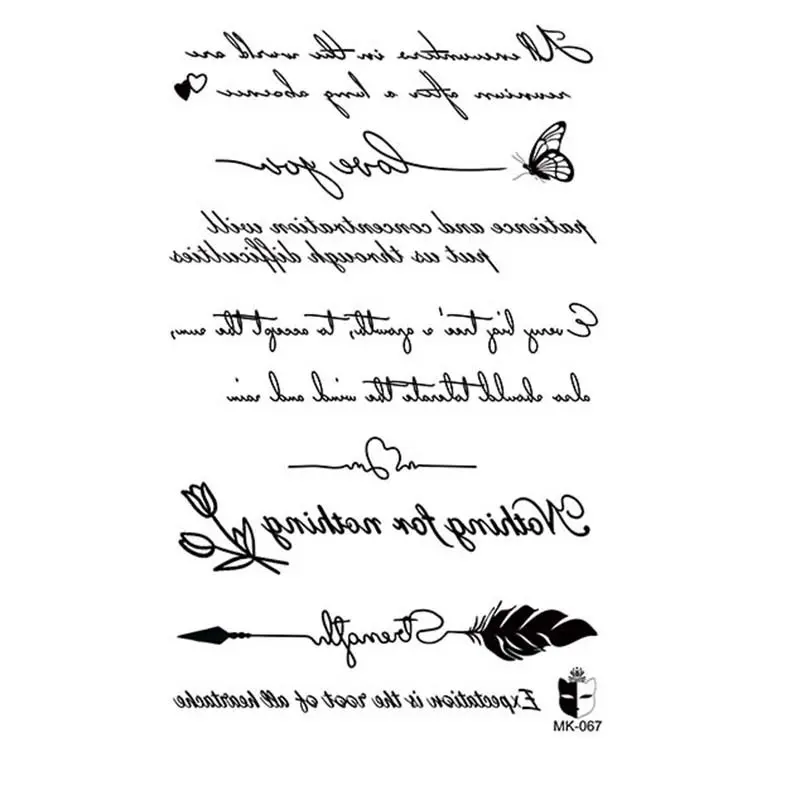 All encounters in the world are
reunion after a long absence
love you
patience and concentration will
put us through difficulties
Every big tree's growth, to accept the sun,
also should tolerate the wind and rain
Nothing for nothing
Strength
Expectation is the root of all heartache
MK-067